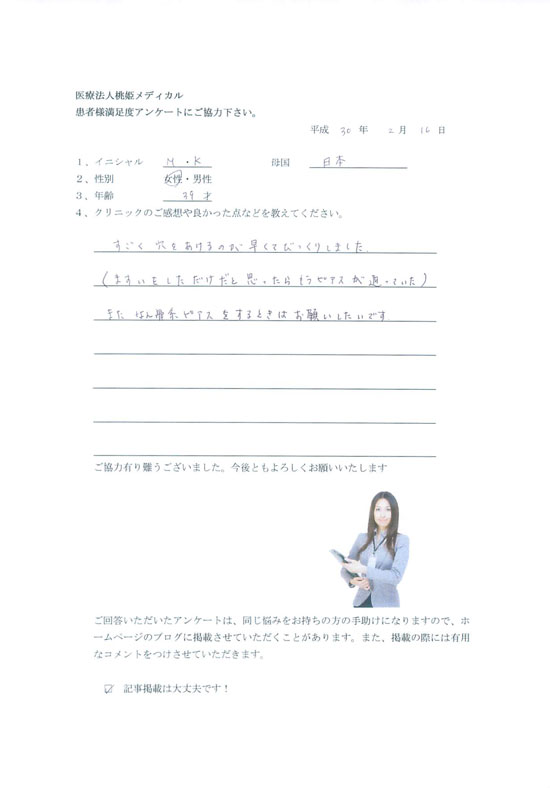 医療法人桃姫メディカル
患者様満足度アンケートにご協力下さい。
平成 30 年 2 月 16 日
1、イニシャル M・K 母国 日本
2、性別 女性・男性
3、年齢 39 才
4、クリニックのご感想や良かった点などを教えてください。
すごく 穴をあけるのが 早くてびっくりしました。
(ますいをしただけだと思ったらもうピアスが通っていた)
また なん骨系ピアスをするときはお願いしたいです
ご協力有り難うございました。今後ともよろしくお願いいたします
ご回答いただいたアンケートは、同じ悩みをお持ちの方の手助けになりますので、ホ
ームページのブログに掲載させていただくことがあります。また、掲載の際には有用
なコメントをつけさせていただきます。
☑ 記事掲載は大丈夫です！